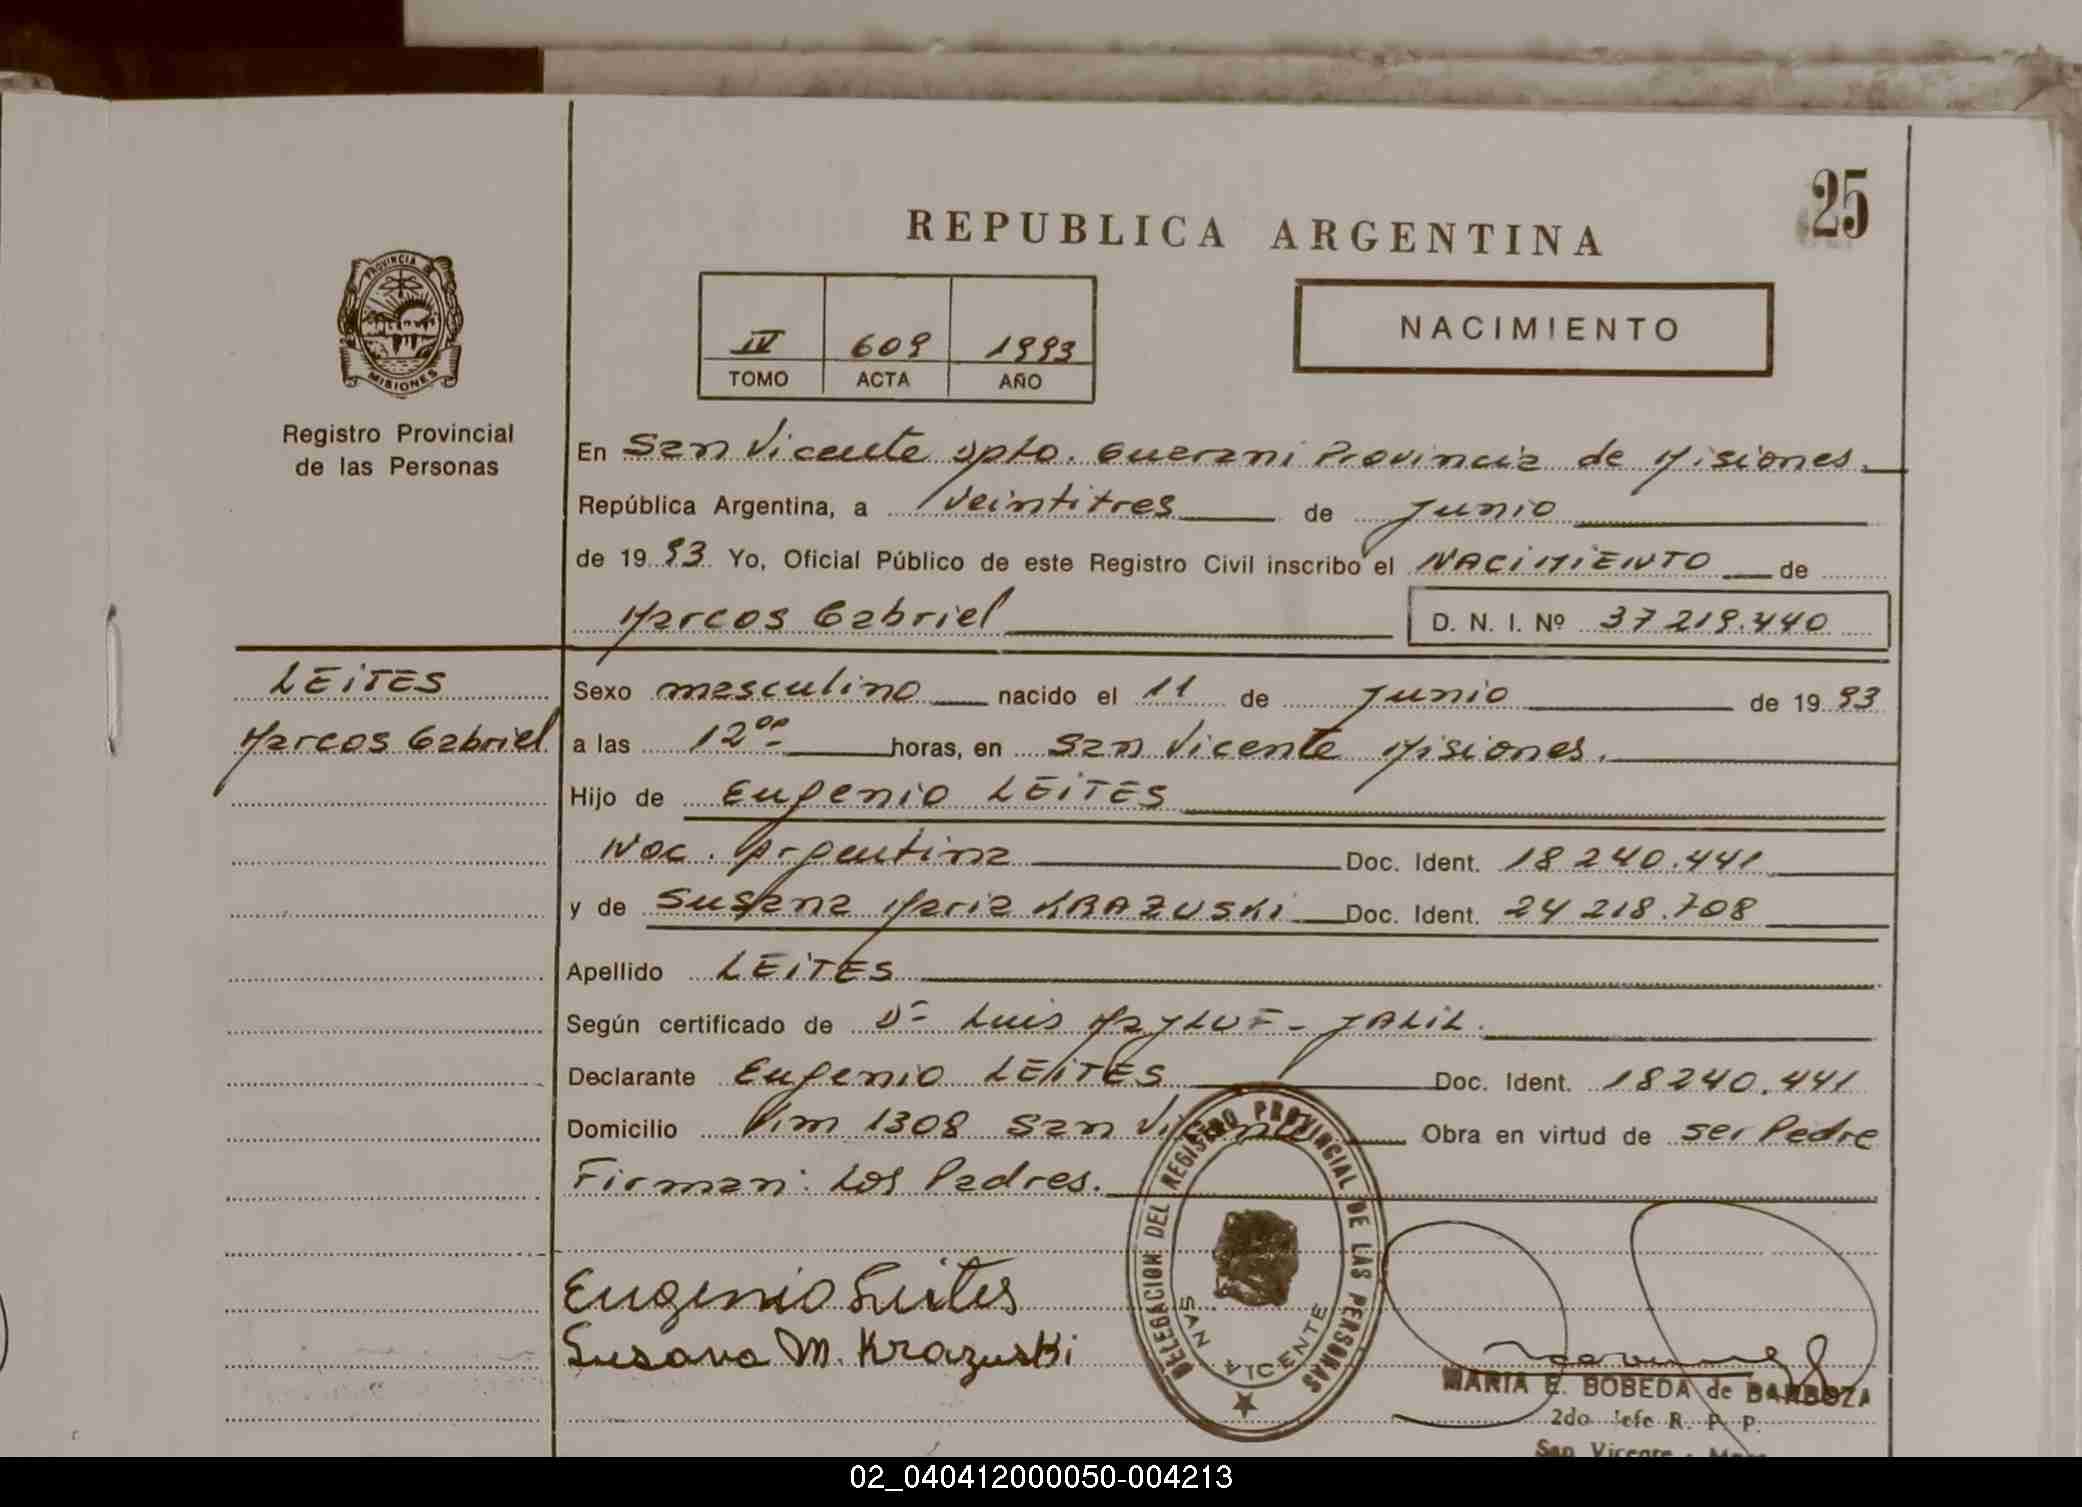 25
REPUBLICA ARGENTINA
PROVINCIA DE MISIONES
IV 609 1993
TOMO ACTA AÑO
NACIMIENTO
Registro Provincial
de las Personas
En San Vicente Dpto. Guarani Provincia de Misiones.
República Argentina, a Veintitres de Junio
de 1993 Yo, Oficial Público de este Registro Civil inscribo el NACIMIENTO de
Marcos Gabriel D. N. I. Nº 37 219.440
LEITES
Marcos Gabriel
Sexo masculino nacido el 11 de Junio de 1993
a las 12 00 horas, en San Vicente Misiones.
Hijo de Eugenio LEITES
Nac. Argentina Doc. Ident. 18 240.441
y de Susana Maria KRAZUSKI Doc. Ident. 24 218.708
Apellido LEITES
Según certificado de Dr Luis JALIL.
Declarante Eugenio LEITES Doc. Ident. 18240.441
Domicilio Km 1308 San Vicente Obra en virtud de ser Padre
Firman: Los Padres.
Eugenio Leites
Susana M. Krazuski
DELEGACION DEL REGISTRO PROVINCIAL DE LAS PERSONAS
SAN VICENTE
MARIA E. BOBEDA de BARBOZA
2do Jefe R. P. P.
San Vicente -
02_040412000050-004213